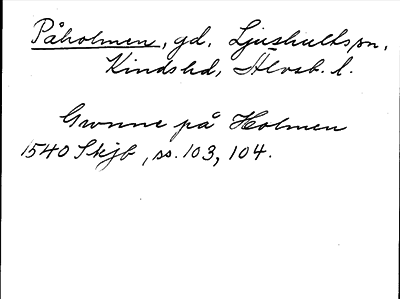 Påholmen, gd. Ljushultspn,
Kindshd, Älvsb. l.
Gunne på Holmen
1540 Skjb, ss. 103, 104.